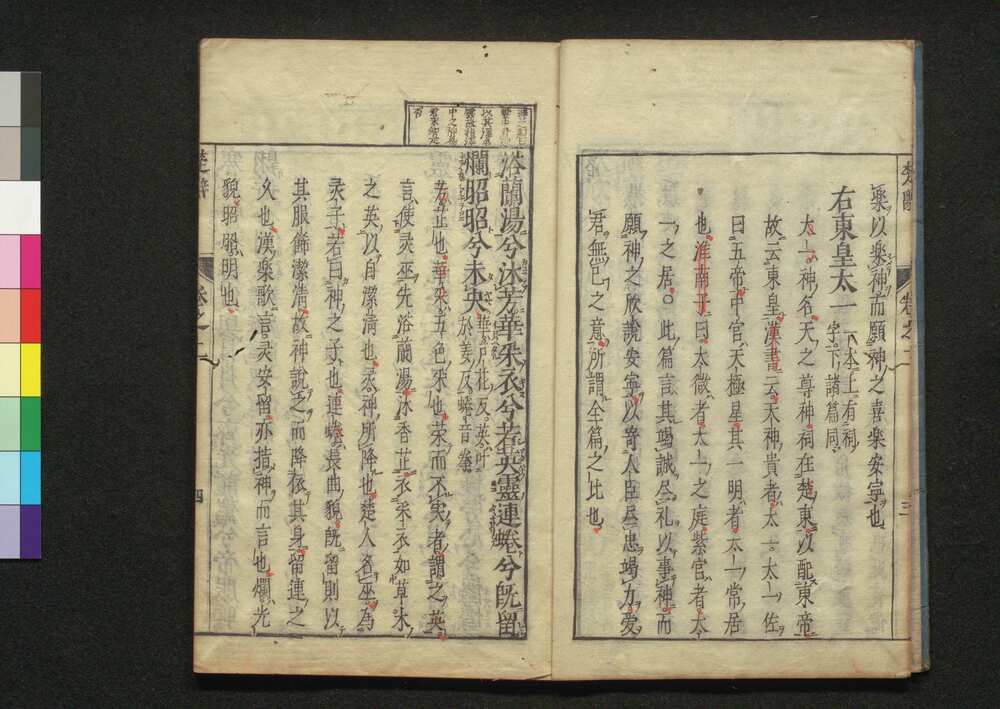 樂以樂神而願神之喜樂安寧也
右東皇太一
一本上有祠
字下諸篇同
太一神名天之尊神祠在楚東以配東帝
故云東皇漢書云天神貴者太一太一佐
曰五帝中宮天極星其一明者太一常居
也淮南子曰太微者太一之庭紫宮者太
一之居○此篇言其竭誠尽礼以事神而
願神之欣說安寧以寄人臣尽忠竭力愛
君無已之意所謂全篇之比也
三
浴蘭湯兮沐芳華采衣兮若英靈連蜷兮旣留
爛昭昭兮未央
華戶花反英叶
於姜反蜷音拳
芳芷也華采五色采也荣而不実者謂之英
言使灵巫先浴蘭湯沐香芷衣采衣如草木
之英以自潔清也灵神所降也楚人名巫為
灵子若曰神之子也連蜷長曲貌旣留則以
其服飾潔清故神說之而降依其身留連之
久也漢樂歌言灵安留亦指神而言也爛光
貌昭昭明也
楚辞
卷之二
四